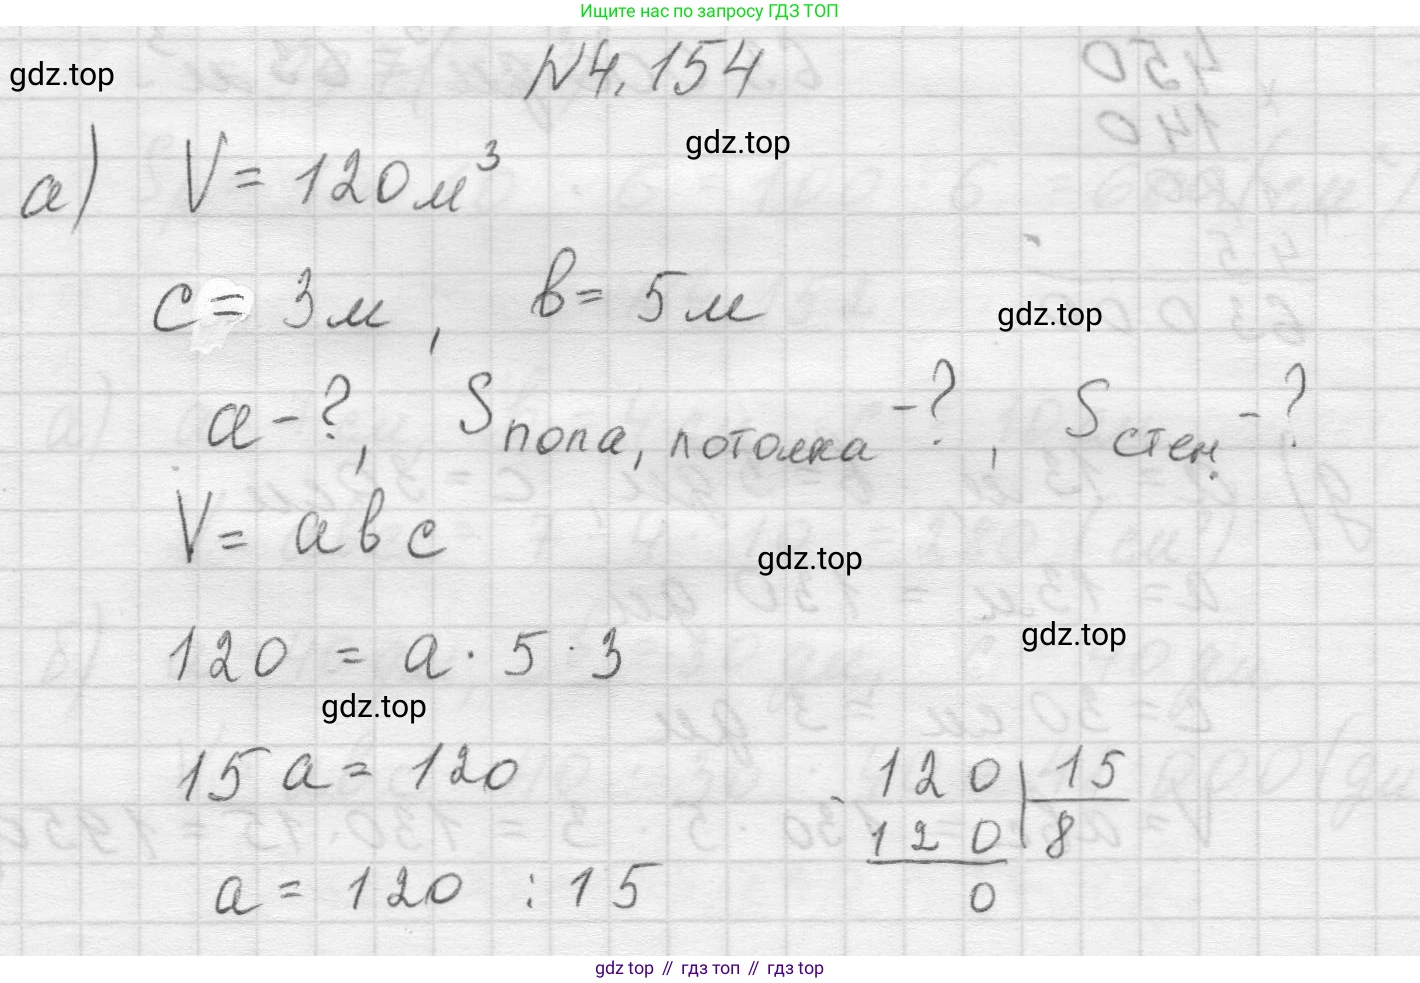 Ищите нас по запросу ГДЗ ТОП
gdz.top
N4.154
gdz.top
а) V = 120 м³
c = 3 м, b = 5 м
gdz.top
a - ?, S пола, потолка - ?, S стен. - ?
V = a b c
gdz.top
120 = a · 5 · 3
gdz.top
gdz.top
15 a = 120
a = 120 : 15
- 120 | 15
120 8
0
gdz top // гдз топ // гдз top